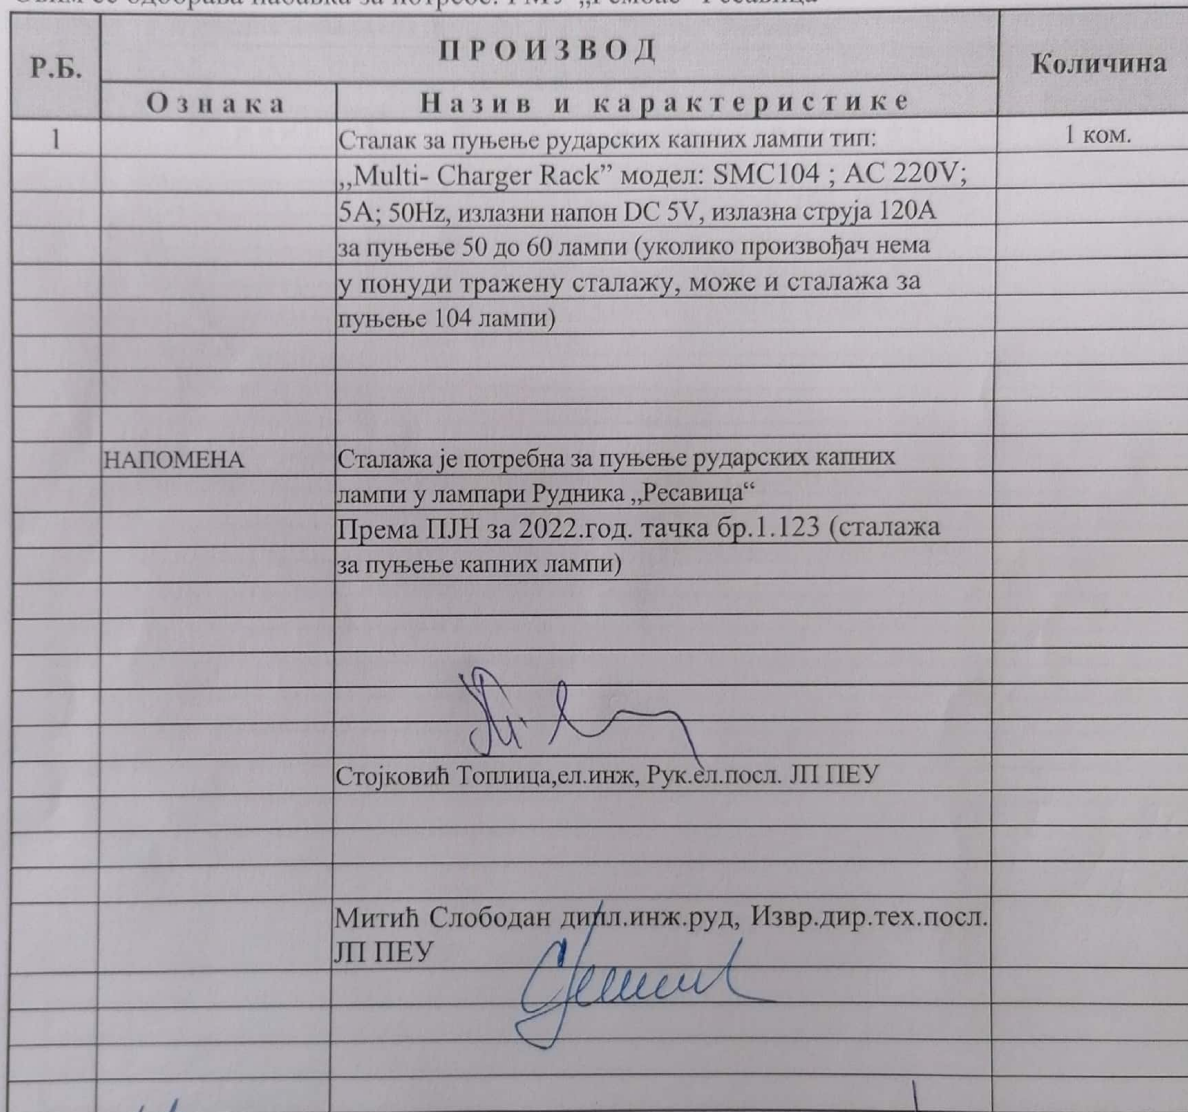 Р.Б.
ПРОИЗВОД
Количина
Ознака
Назив и карактеристике
1
Сталак за пуњење рударских капних лампи тип:
1 ком.
,,Multi- Charger Rack” модел: SMC104 ; AC 220V;
5A; 50Hz, излазни напон DC 5V, излазна струја 120A
за пуњење 50 до 60 лампи (уколико произвођач нема
у понуди тражену сталажу, може и сталажа за
пуњење 104 лампи)
НАПОМЕНА
Сталажа је потребна за пуњење рударских капних
лампи у лампари Рудника ,,Ресавица“
Према ПЈН за 2022.год. тачка бр.1.123 (сталажа
за пуњење капних лампи)
Стојковић Топлица,ел.инж, Рук.ел.посл. ЈП ПЕУ
Митић Слободан дипл.инж.руд, Извр.дир.тех.посл.
ЈП ПЕУ